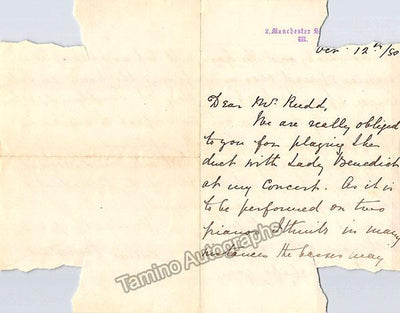 2, Manchester S
W.
Dec. 12th/80
Dear Mr Rudd,
We are really obliged
to you for playing the
duet with Lady Benedict
at my Concert. As it is
to be performed on two
pianos I think in many
instances the basses may
Tamino Autographs